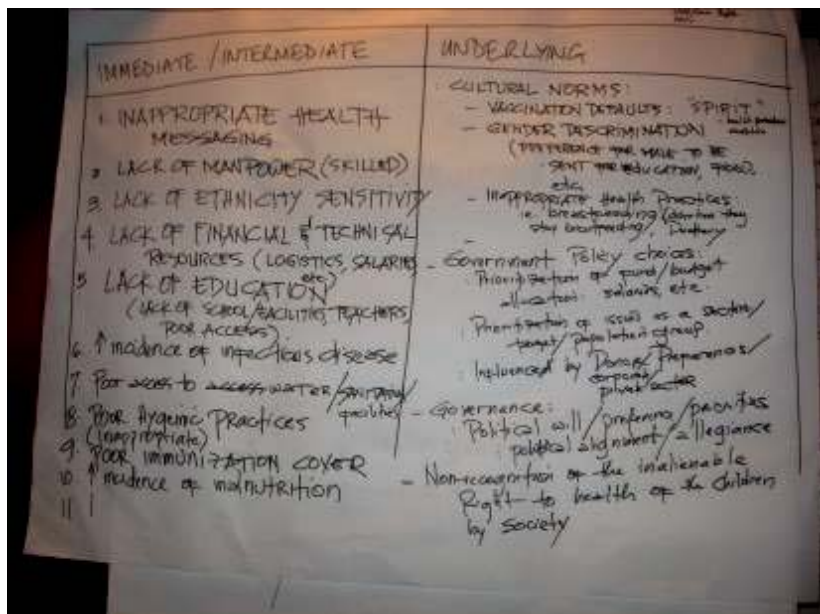 IMMEDIATE / INTERMEDIATE
1. INAPPROPRIATE HEALTH
MESSAGING
2. LACK OF MANPOWER (SKILLED)
3. LACK OF ETHNICITY SENSITIVITY
4. LACK OF FINANCIAL & TECHNICAL
RESOURCES (LOGISTICS, SALARIES
etc)
5 LACK OF EDUCATION
(LACK OF SCHOOL/FACILITIES, TEACHERS,
POOR ACCESS)
6. ↑ incidence of infectious disease
7. Poor access to water/sanitation
facilities
8. Poor Hygienic Practices
(Inappropriate)
9. POOR IMMUNIZATION COVER
10. ↑ incidence of malnutrition
11
UNDERLYING
CULTURAL NORMS:
- VACCINATION DEFAULTS: "SPIRIT"
- GENDER DISCRIMINATION
(PREFERENCE FOR MALE TO BE
SENT FOR EDUCATION, FOOD,
etc.
- Inappropriate Health Practices
i.e. breastfeeding
stop breastfeeding/
- Government Policy choices:
Prioritization of fund/budget
allocation: salaries, etc.
Prioritization of issues as a sector/
target/population group
Influenced by Donors/Preferences/
corporate/
private sector
- Governance:
Political will/preference/priorities
political alignment/allegiance
- Non-recognition of the inalienable
Right to health of the children
by society